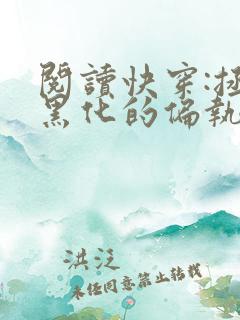 閱讀快穿:拯
黑化的偏執
洪泛
未經同意禁止轉載